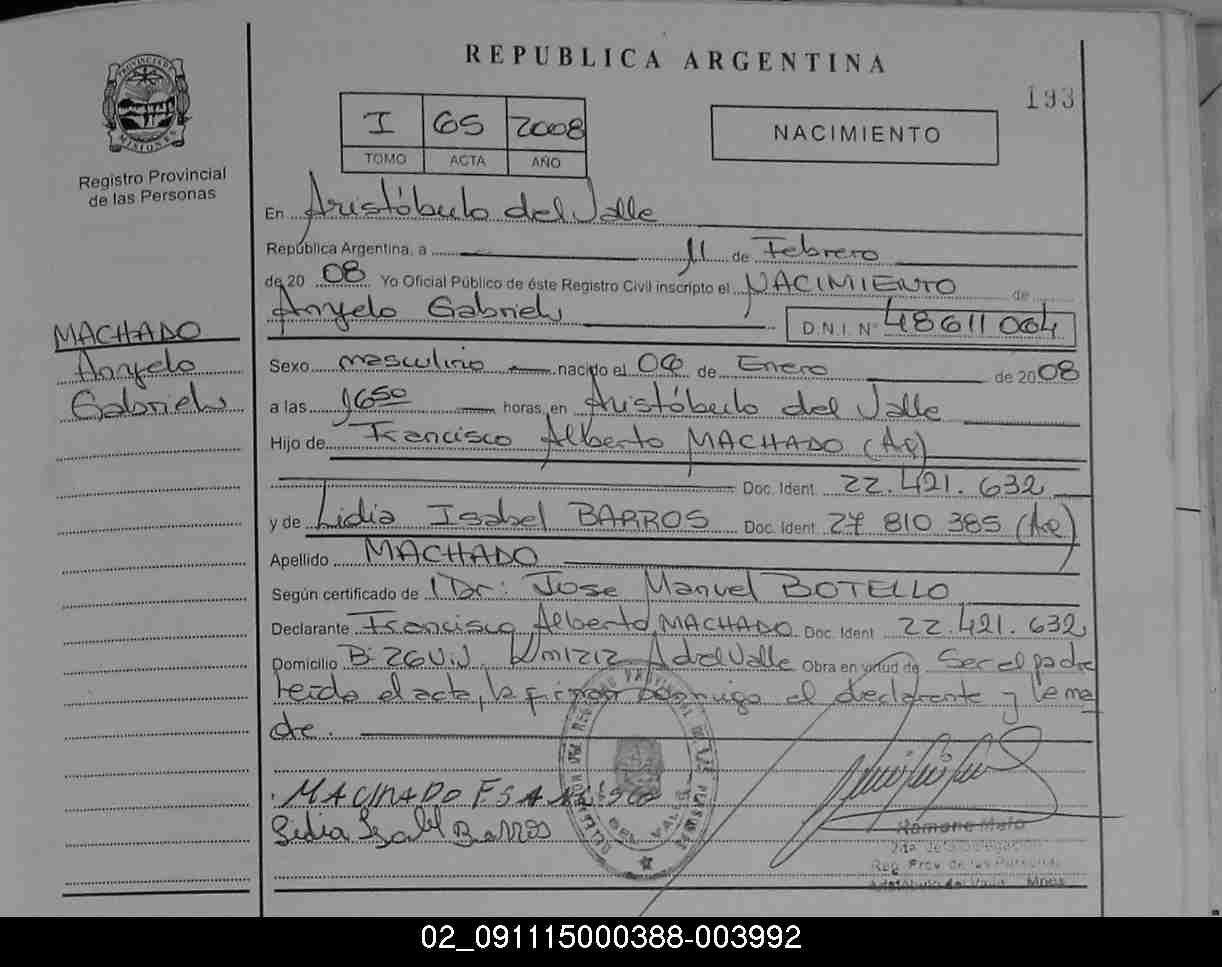 REPUBLICA ARGENTINA
193
PROVINCIA DE MISIONES
Registro Provincial
de las Personas
I 65 2008
TOMO ACTA AÑO
NACIMIENTO
En Aristóbulo del Valle
República Argentina, a 11 de Febrero
de 20 08 Yo Oficial Público de éste Registro Civil inscripto el NACIMIENTO de
Angelo Gabriel
D.N.I. Nº 48611064
MACHADO
Angelo
Gabriel
Sexo masculino nacido el 08 de Enero de 20 08
a las 1650 horas, en Aristóbulo del Valle
Hijo de Francisco Alberto MACHADO (Ag)
Doc. Ident. 22.421.632
y de Lidia Isabel BARROS Doc. Ident. 27 810 385 (Ag)
Apellido MACHADO
Según certificado de Dr: Jose Manuel BOTELLO
Declarante Francisco Alberto MACHADO Doc. Ident. 22.421.632
Domicilio Km1212 A del Valle Obra en virtud de Ser el padre
leida el acta, la firman conmigo el declarante y la ma
dre.
MACHADO
Lidia Isabel Barros
REGISTRO PROVINCIAL DE LAS PERSONAS
DEL VALLE
Reg. Prov. de las Personas
Aristóbulo del Valle Mnes.
02_091115000388-003992